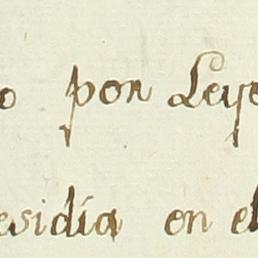 o por Leye
esidía en el